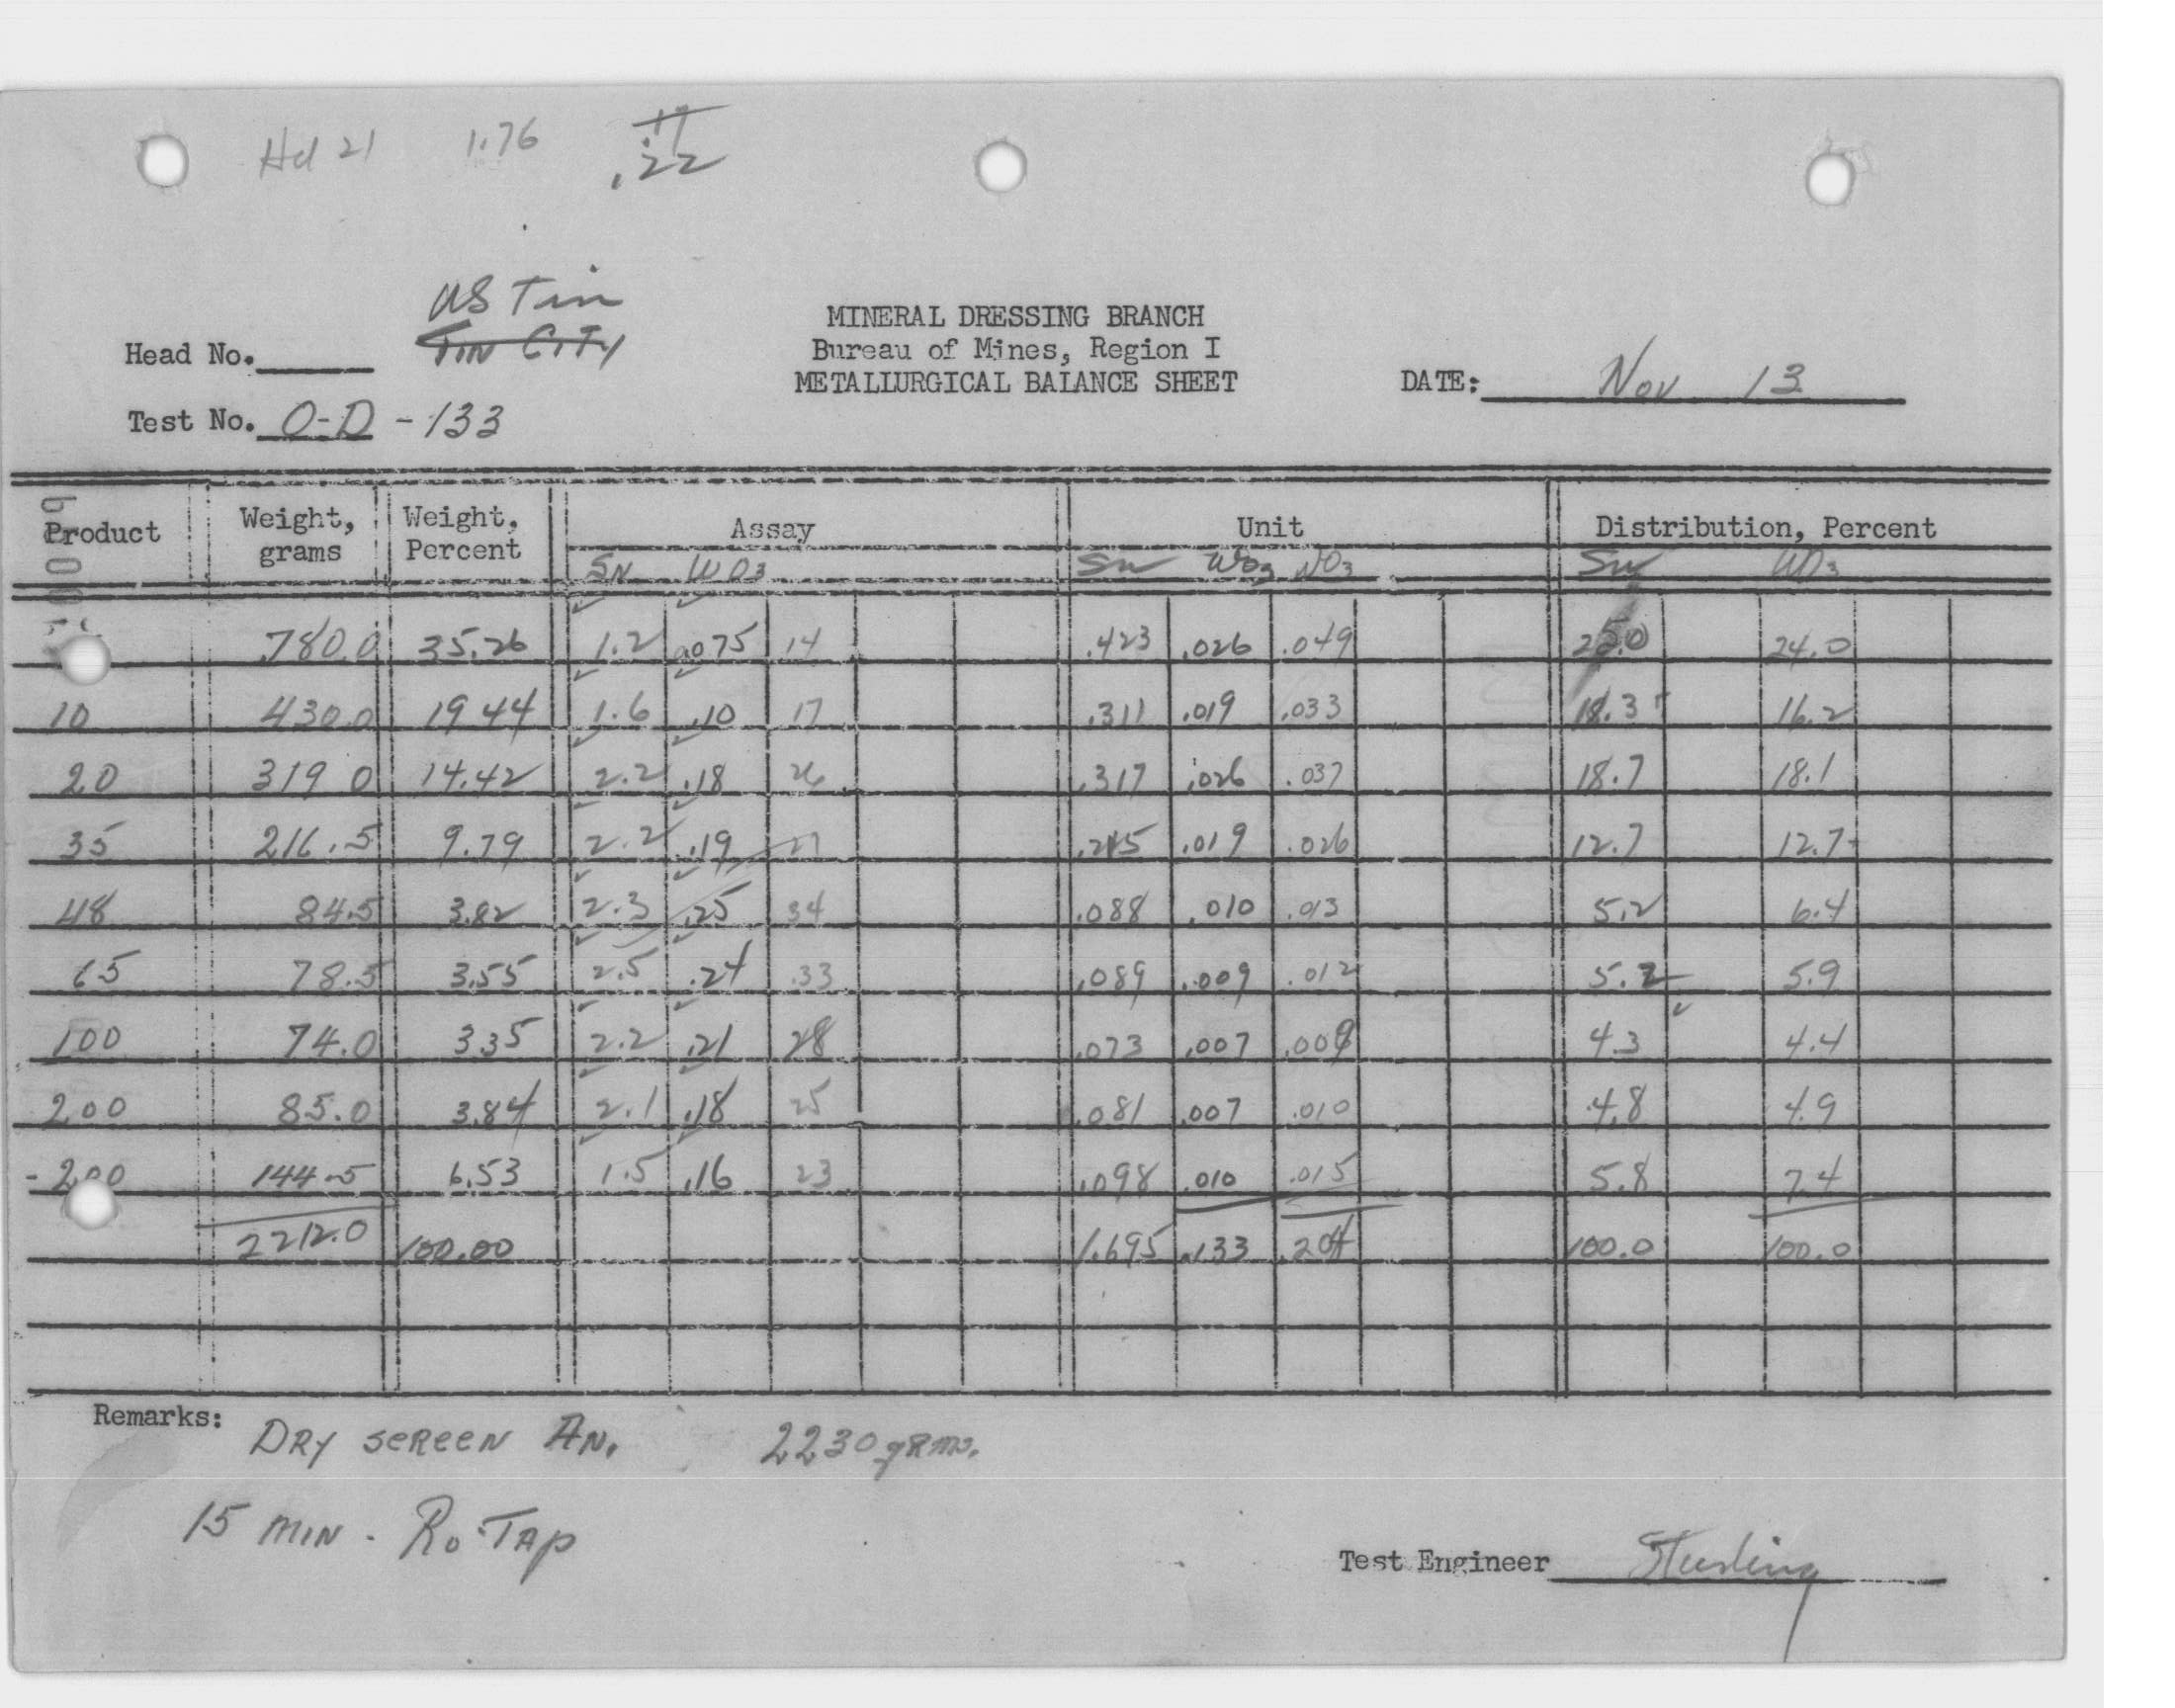 Hd 21 1.76 .17
.22
US Tin
TIN CITY
MINERAL DRESSING BRANCH
Bureau of Mines, Region I
METALLURGICAL BALANCE SHEET
Head No.
DATE: Nov 13
Test No. O-D - 133
Product Weight, grams Weight, Percent Assay Unit Distribution, Percent
SN WO3 Sn WO3 WO3 Sn WO3
780.0 35.26 1.2 0.075 14 .423 .026 .049 25.0 24.0
10 430.0 19 44 1.6 .10 17 .311 .019 .033 18.3 16.2
20 319 0 14.42 2.2 .18 26 .317 .026 .037 18.7 18.1
35 216.5 9.79 2.2 .19 27 .215 .019 .026 12.7 12.7
48 84.5 3.82 2.3 .25 34 .088 .010 .013 5.2 6.4
65 78.5 3.55 2.5 .24 .33 .089 .009 .012 5.2 5.9
100 74.0 3.35 2.2 .21 28 .073 .007 .009 4.3 4.4
200 85.0 3.84 2.1 .18 25 .081 .007 .010 4.8 4.9
-200 144.5 6.53 1.5 .16 23 .098 .010 .015 5.8 7.4
2212.0 100.00 1.695 .133 .204 100.0 100.0
Remarks: DRY SCREEN AN. 2230 grms.
15 MIN - Ro-TAP
Test Engineer Sterling